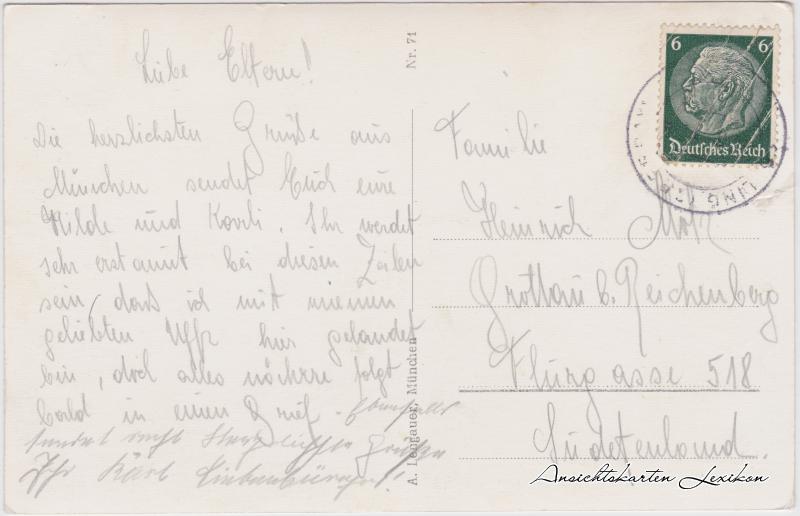 Liebe Eltern!
Die herzlichsten Grüße aus
München sendet Euch eure
Hilde und Karli. Ihr werdet
sehr erstaunt bei diesen Zeilen
sein, daß ich mit meinem
geliebten Uffz hier gelandet
bin, doch alles nähere folgt
bald in einem Brief. Ebenfalls
sendet recht Herzlichste Grüße
Ihr Karl
Nr. 71
A. Lengauer, München
6 6
Deutsches Reich
Familie
Heinrich
Grottau b. Reichenberg
Flurgasse 518
Sudetenland.
Ansichtskarten Lexikon